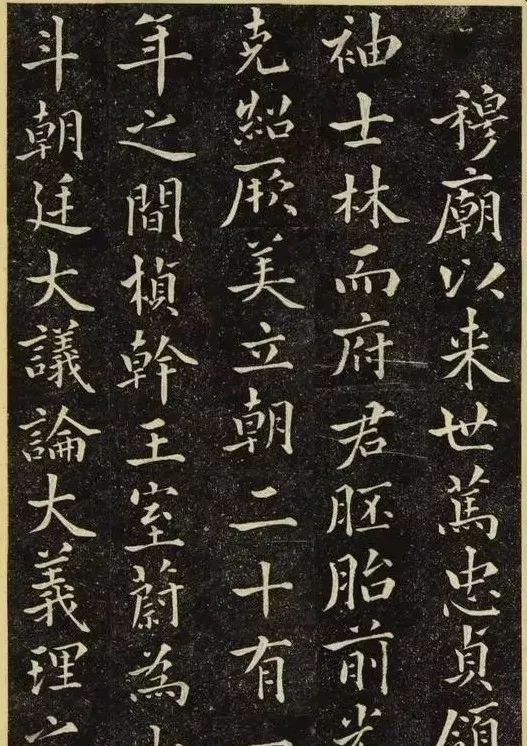 穆廟以来世篤忠貞領
袖士林而府君胚胎前光
克紹厥美立朝二十有
年之間楨幹王室蔚為
斗朝廷大議論大義理之